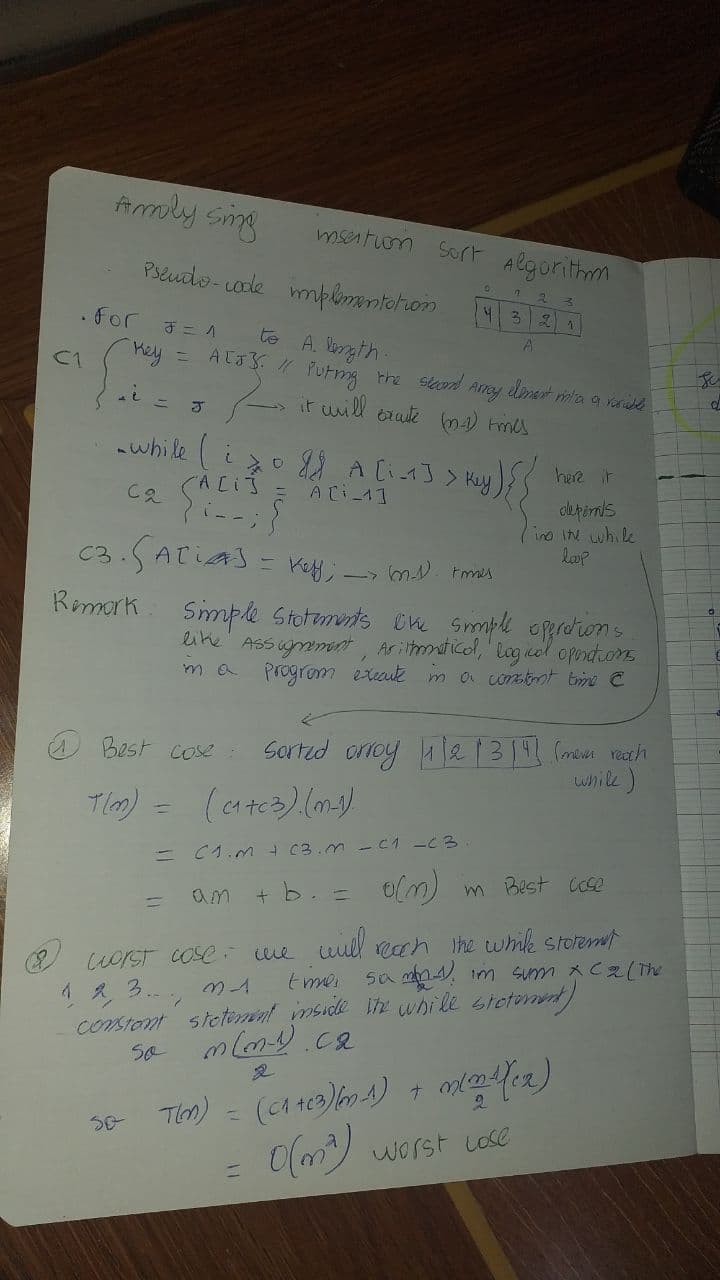 Analysing insertion Sort Algorithm
Pseudo-code implementation
0 1 2 3
4 3 2 1
A
. For J = 1 to A. length.
C1 { Key = A[J]; // Puting the second Array element into a variable
. i = J } → it will exute (n-1) times
. while ( i > 0 && A [i-1] > Key) {
C2 { A[i] = A[i-1]
i--; }
here it
depends
ino the while
loop
C3 . { A[i] = Key; → (n-1). times
Remark. Simple Statements like simple operations
like Assignement, Arithmetical, logical operations
in a program execute in a constant time C
① Best case : Sorted array 1 2 3 4 (never reach
while)
T(n) = (c1+c3).(n-1)
= C1.n + C3.n - C1 - C3.
= an + b. = O(n) in Best case
② worst case :- we will reach the while statemet
1, 2, 3..., n-1 times so in sum x C2 (The
constant statement inside the while statement)
so n(n-1)/2 . C2
so T(n) = (C1+C3)(n-1) + n(n-1)/2 (C2)
= O(n²) worst case